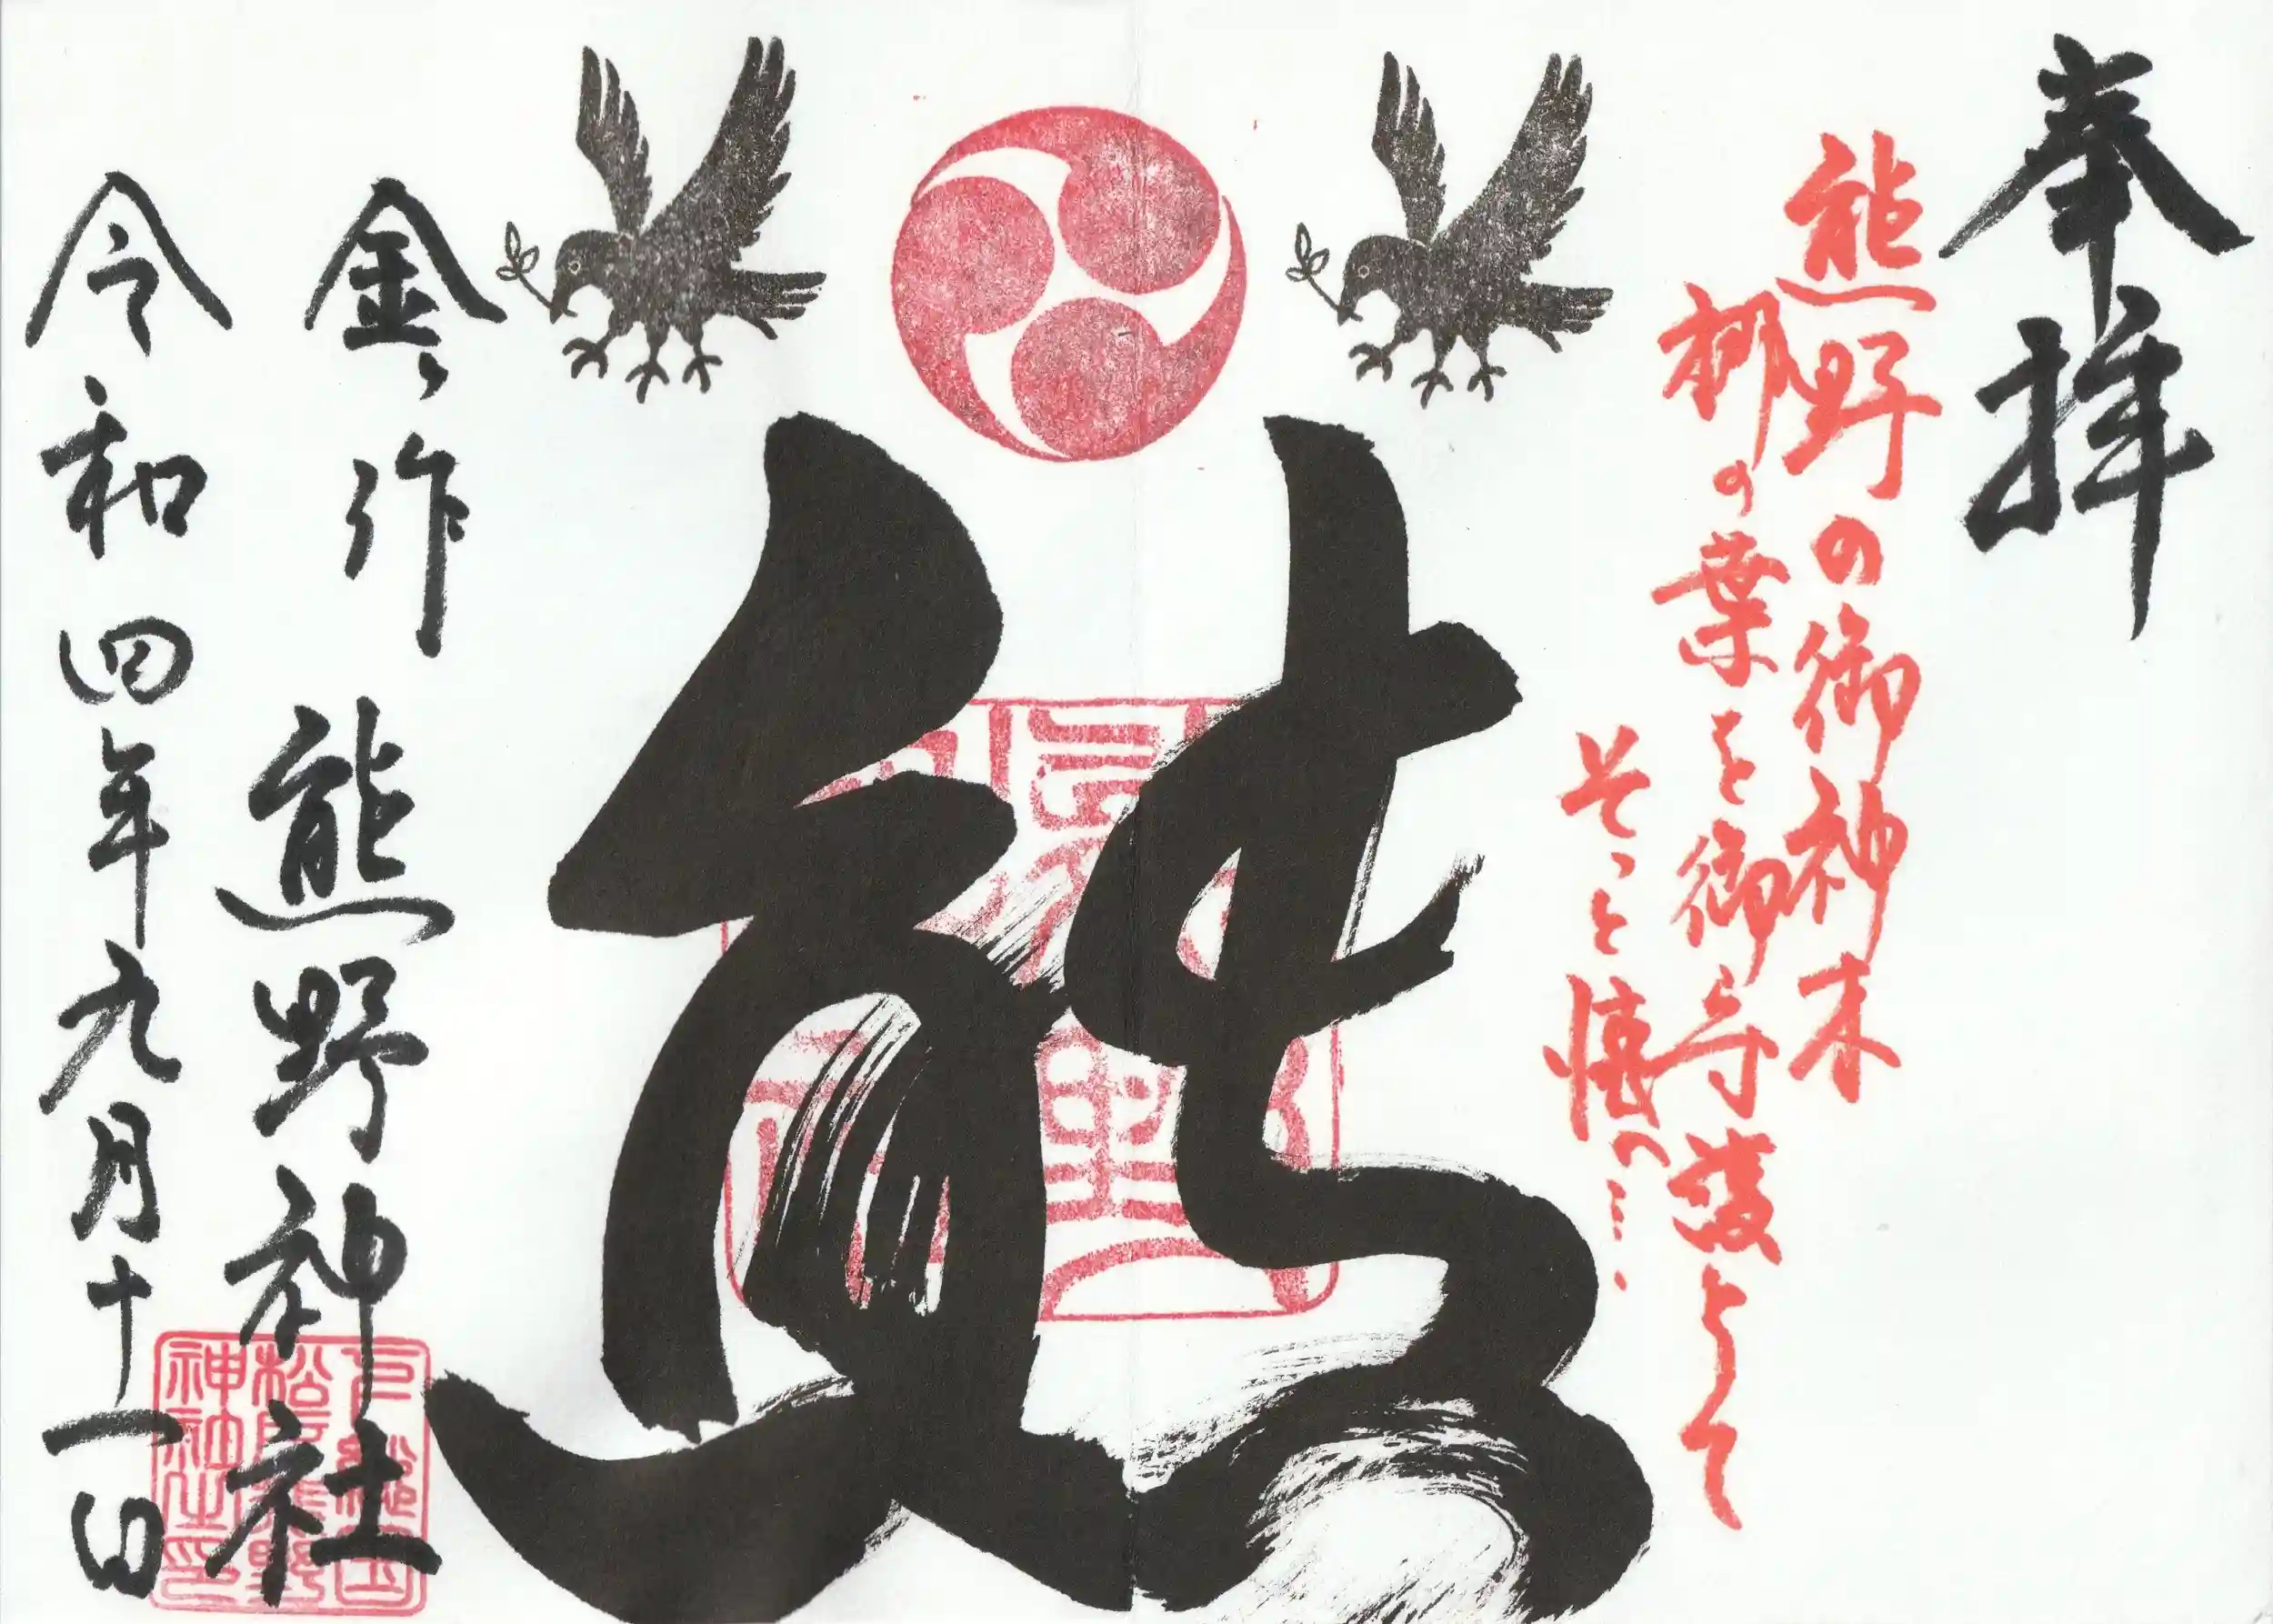 奉拝
熊野の御神木
梛の葉を御守護として
そっと懐へ……
熊
金ヶ作 熊野神社
令和四年九月十一日